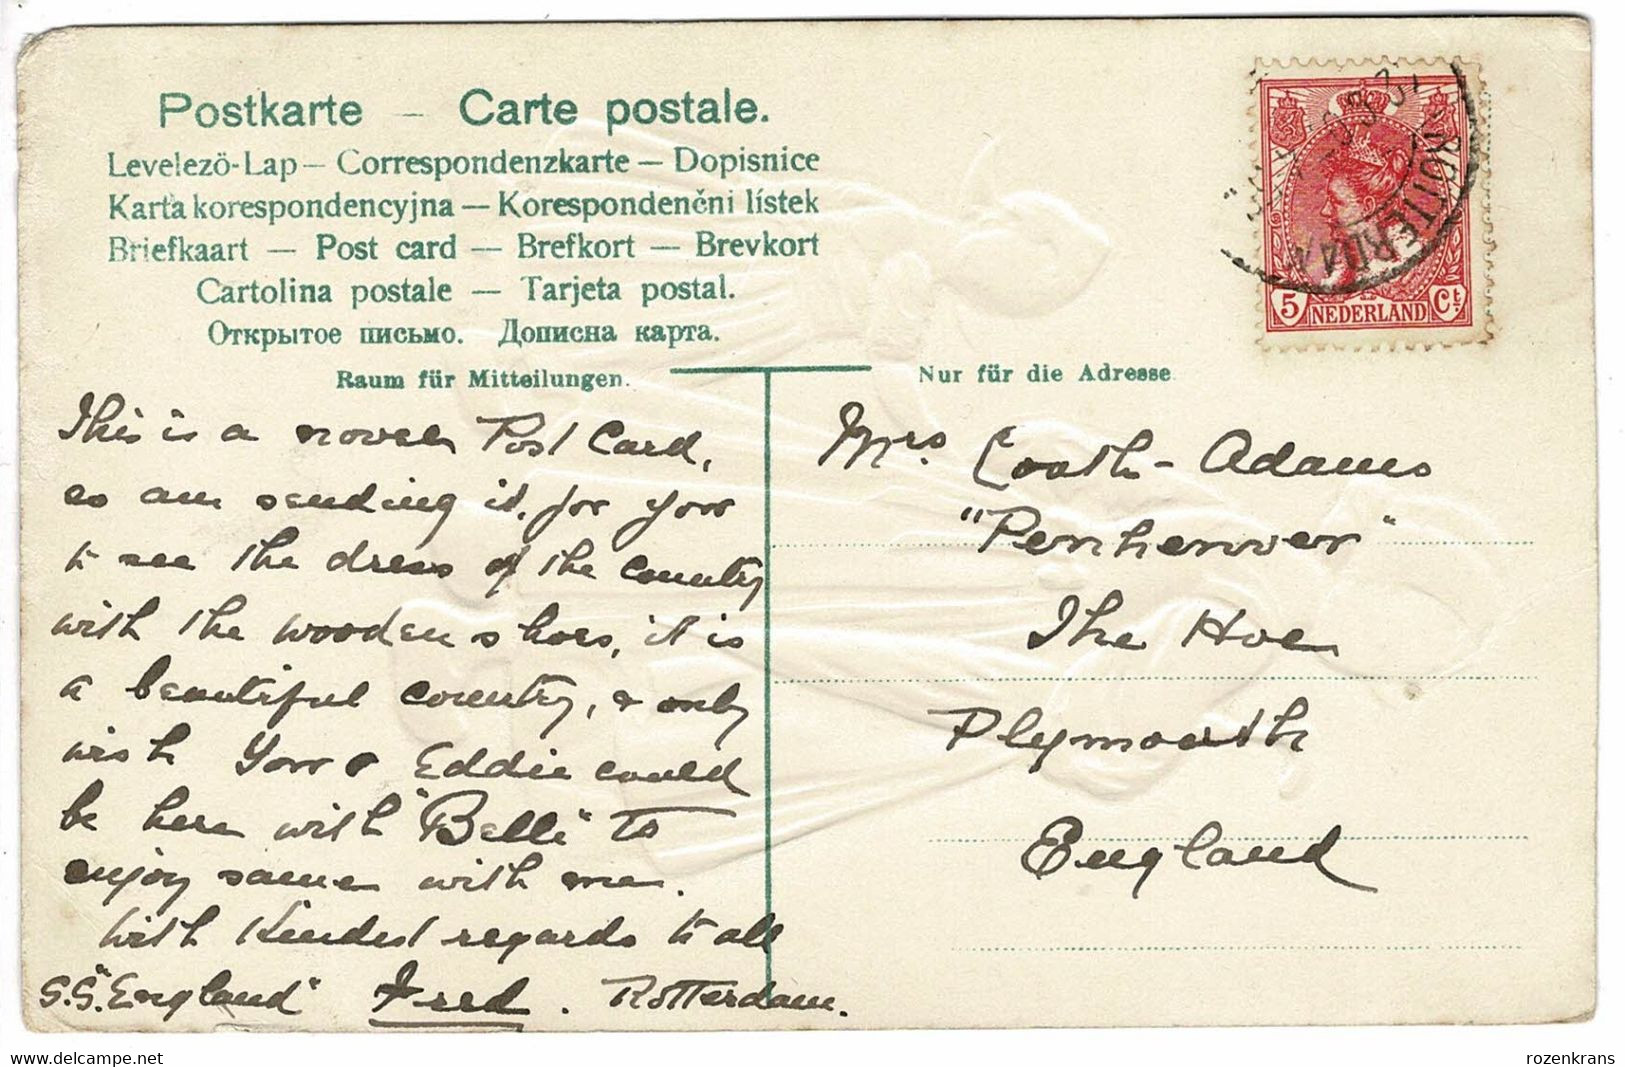 Postkarte – Carte postale.
Levelezö-Lap – Correspondenzkarte – Dopisnice
Karta korespondencyjna – Korespondenčni lístek
Briefkaart – Post card – Brefkort – Brevkort
Cartolina postale – Tarjeta postal.
Открытое письмо. Дописна карта.
Raum für Mitteilungen.
Nur für die Adresse
ROTTERDAM
5 NEDERLAND Ct.
This is a novel Post Card,
so am sending it, for You
to see the dress of the country
with the wooden shoes, it is
a beautiful country, & only
wish You & Eddie could
be here with "Belle" to
enjoy same with me.
With Kindest regards to all
S.S. "England" Fred. Rotterdam.
Mrs. Coath-Adams
The Hoe
Plymouth
England
delcampe.net
rozenkrans